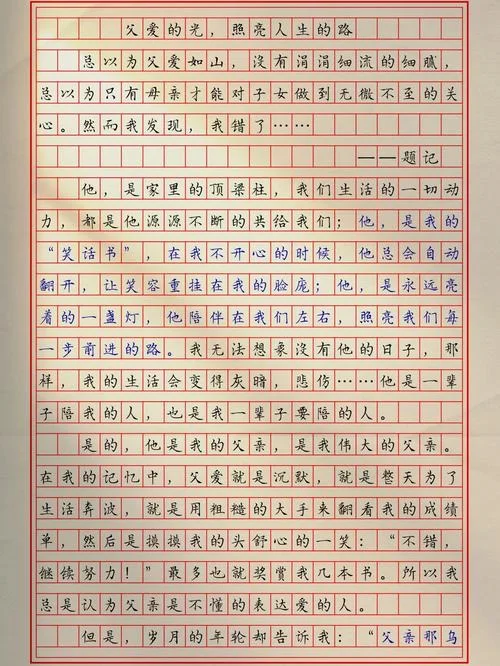 父爱的光，照亮人生的路
总以为父爱如山，没有涓涓细流的细腻，
总以为只有母亲才能对子女做到无微不至的关
心。然而我发现，我错了……
——题记
他，是家里的顶梁柱，我们生活的一切动
力，都是他源源不断的共给我们；他，是我的
“笑话书”，在我不开心的时候，他总会自动
翻开，让笑容重挂在我的脸庞；他，是永远亮
着的一盏灯，他陪伴在我们左右，照亮我们每
一步前进的路。我无法想象没有他的日子，那
样，我的生活会变得灰暗，悲伤……他是一辈
子陪我的人，也是我一辈子要陪的人。
是的，他是我的父亲，是我伟大的父亲。
在我的记忆中，父爱就是沉默，就是整天为了
生活奔波，就是用粗糙的大手来翻看我的成绩
单，然后是摸摸我的头舒心的一笑：“不错，
继续努力！”最多也就奖赏我几本书。所以我
总是认为父亲是不懂的表达爱的人。
但是，岁月的年轮却告诉我：“父亲那乌